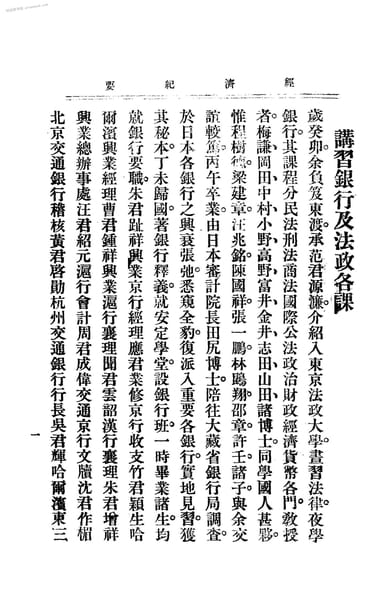 經濟紀要
講習銀行及法政各課
歲癸卯。余負笈東渡。承范君源濂介紹入東京法政大學。晝習法律。夜學
銀行。其課程分民法刑法商法國際公法政治財政經濟貨幣各門。教授
者、梅謙、岡田、中村、小野、高野、富井、金井、志田、山田、諸博士。同學國人甚夥。
惟程樹德。梁建章。汪兆銘。陳國祥。張一鵬。林鵾翔。邵章。許壬。諸子與余交
誼較篤。丙午卒業。由日本審計院長田尻博士。陪往大藏省銀行局調查。
於日本各銀行之興衰張弛。悉窺全豹。復派入重要各銀行。實地見習。獲
其秘本。丁未歸國。著銀行釋義。就安定學堂。設銀行班。一時畢業諸生。均
就銀行要職。朱君趾祥。興業京行經理應君業修。京行收支竹君穎生。哈
爾濱興業經理曹君鍾祥。興業滬行襄理聞君雲韶。漢行襄理朱君增祥。
興業總辦事處汪君紹元。滬行會計周君成偉。交通京行文牘沈君作楣。
北京交通銀行稽核黃君啓勛。杭州交通銀行行長吳君輝。哈爾濱東三
一